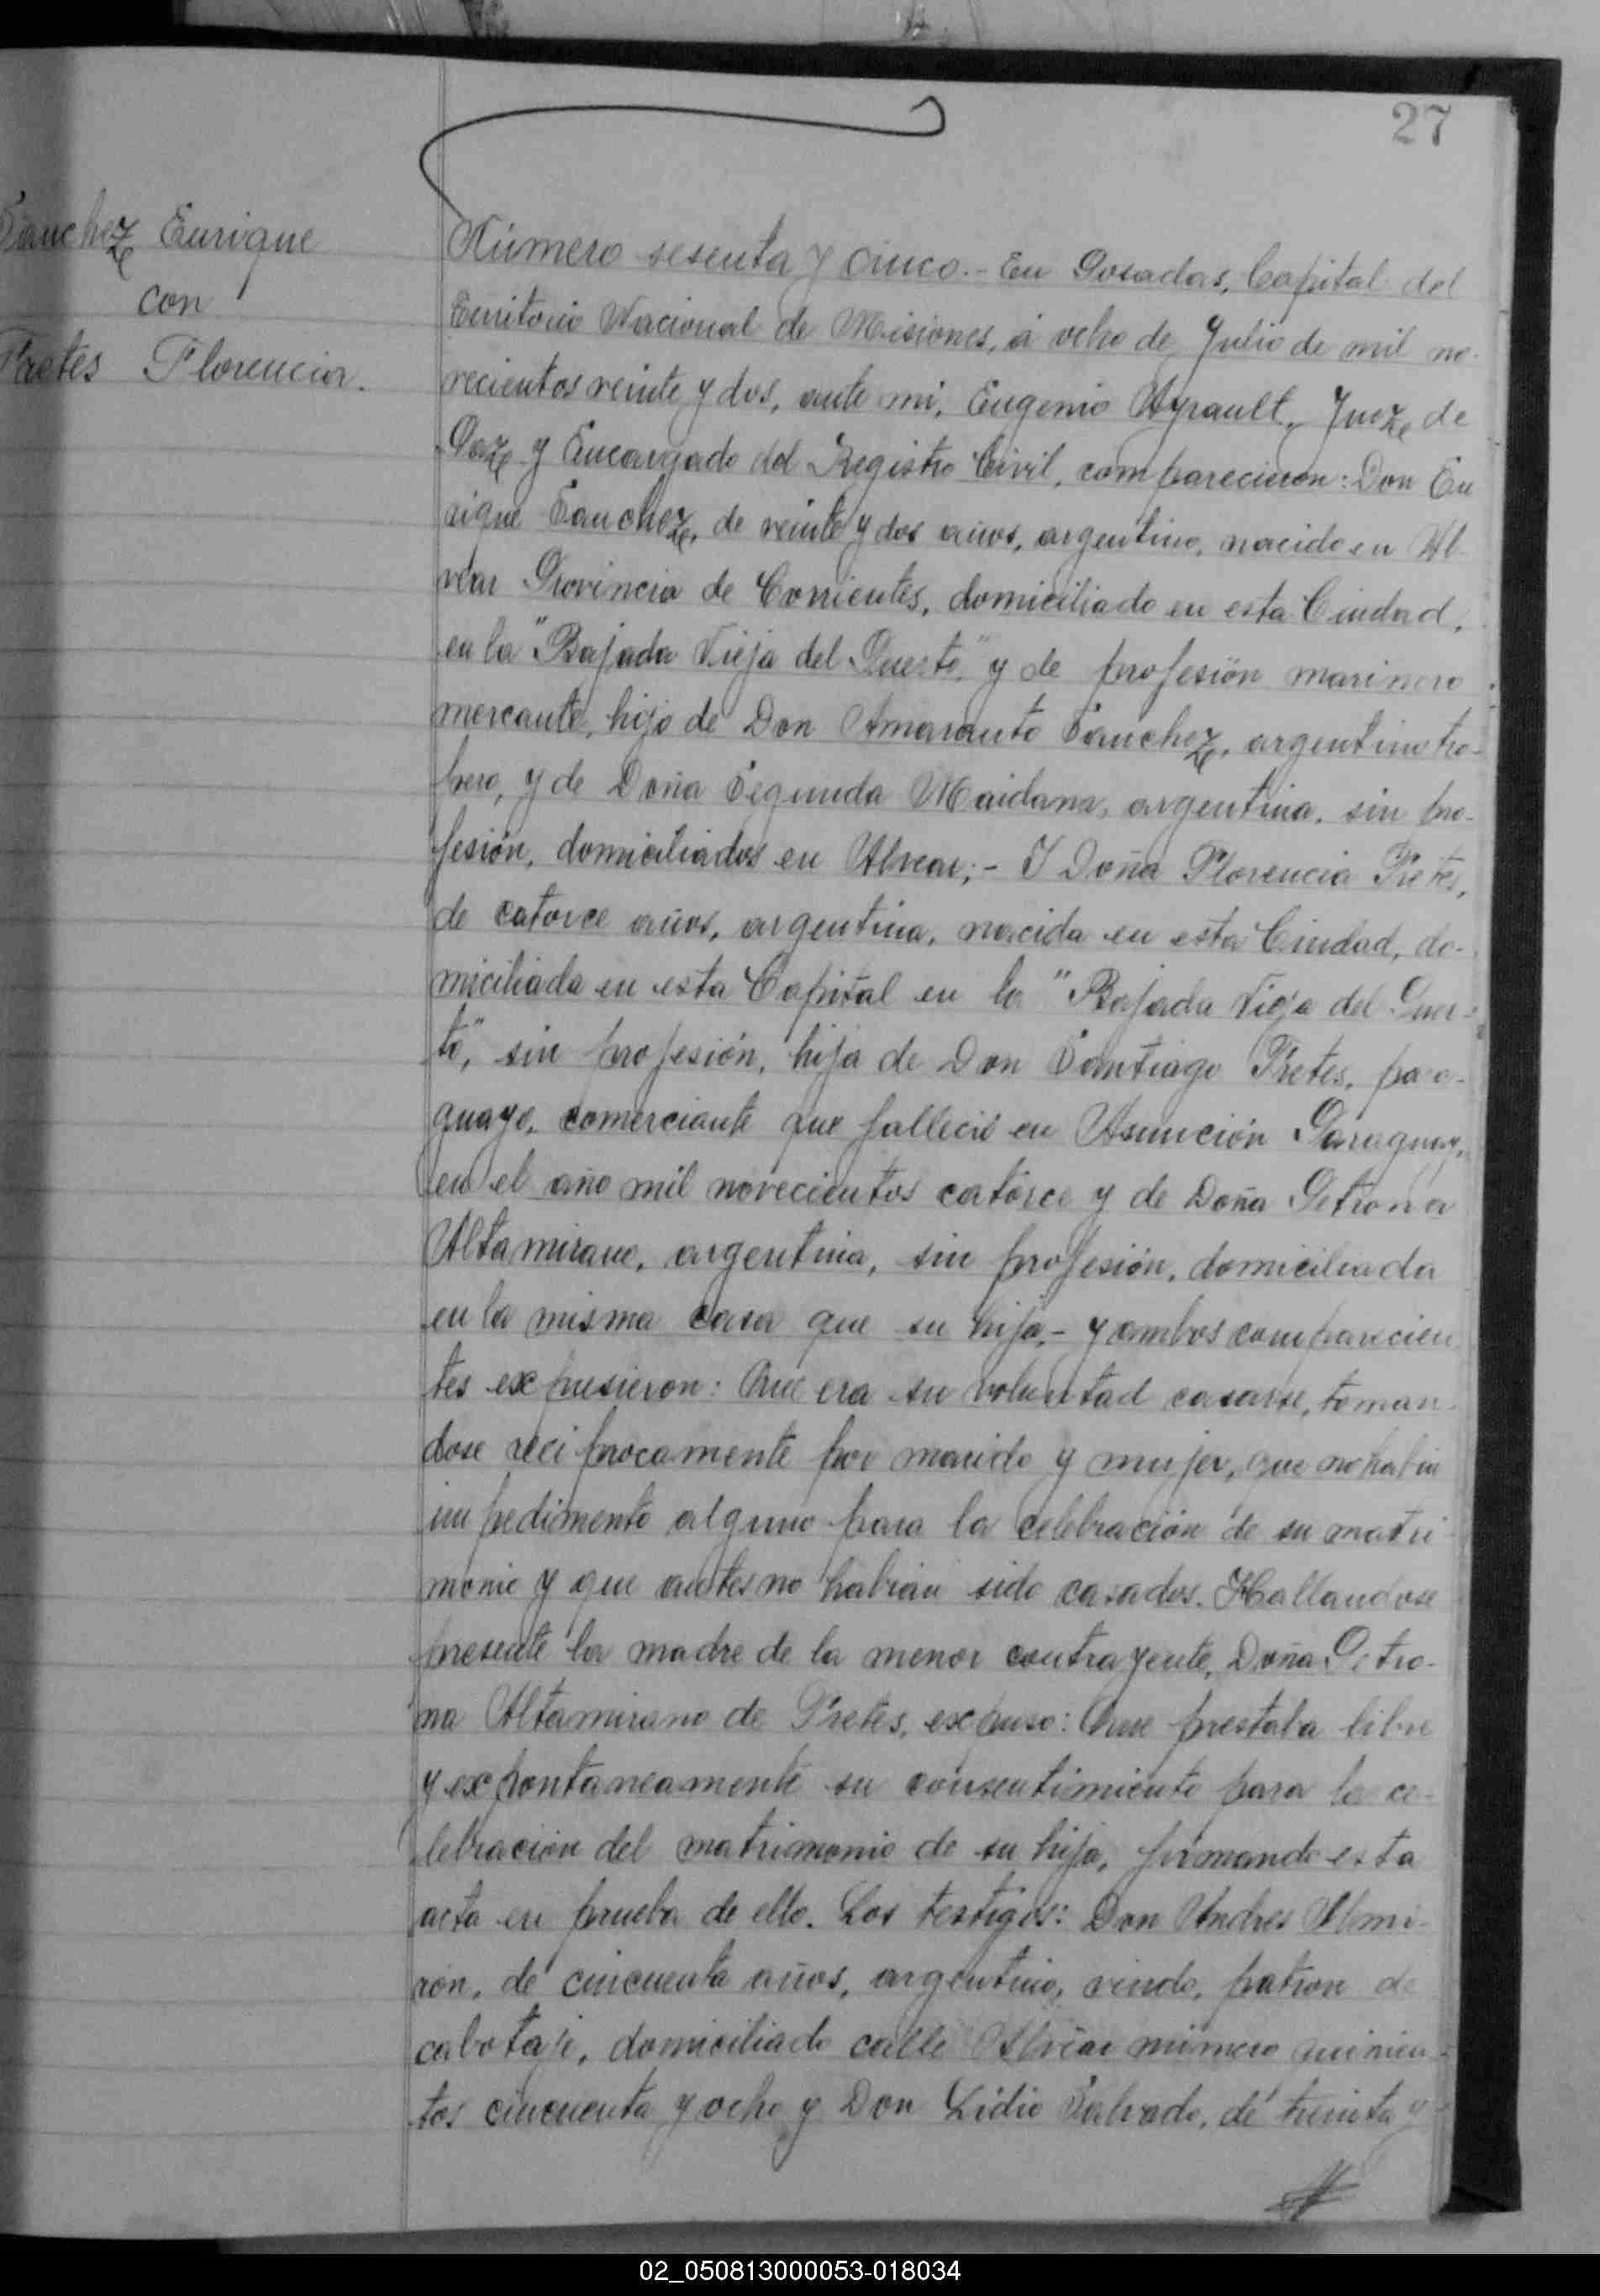 27
Sanchez Enrique
con
Fretes Florencia.
Número sesenta y cinco.- En Posadas, Capital del
Territorio Nacional de Misiones, á ocho de Julio de mil no-
vecientos veinte y dos, ante mi, Eugenio Ayrault, Juez de
Paz y Encargado del Registro Civil, comparecieron: Don En
rique Sanchez, de veinte y dos años, argentino, nacido en Al-
vear Provincia de Corrientes, domiciliado en esta Ciudad,
en la "Bajada Vieja del Puerto" y de profesión marinero
mercante, hijo de Don Amaranto Sanchez, argentino tro-
pero, y de Doña Segunda Maidana, argentina, sin pro-
fesión, domiciliados en Alvear;- Y Doña Florencia Fretes,
de catorce años, argentina, nacida en esta Ciudad, do-
miciliada en esta Capital en la "Bajada Vieja del Puer-
to", sin profesión, hija de Don Santiago Fretes, para-
guayo, comerciante que falleció en Asunción Paraguay,
en el año mil novecientos catorce y de Doña Petrona
Altamirano, argentina, sin profesión, domiciliada
en la misma casa que su hija.- y ambos comparecien
tes expusieron: Que era su voluntad casarse, toman-
dose reciprocamente por marido y mujer, que no habia
impedimento alguno para la celebración de su matri-
monio y que antes no habian sido casados. Hallandose
presente la madre de la menor contrayente, Doña Petro-
na Altamirano de Fretes, expuso: Que prestaba libre
y expontaneamente su consentimiento para la ce-
lebración del matrimonio de su hija, firmando esta
acta en prueba de ello. Los testigos: Don Andres Almi-
ron, de cincuenta años, argentino, viudo, patron de
cabotaje, domiciliado calle Alvear número quinien-
tos cincuenta y ocho y Don Lidio Salvado, de treinta y
02_050813000053-018034